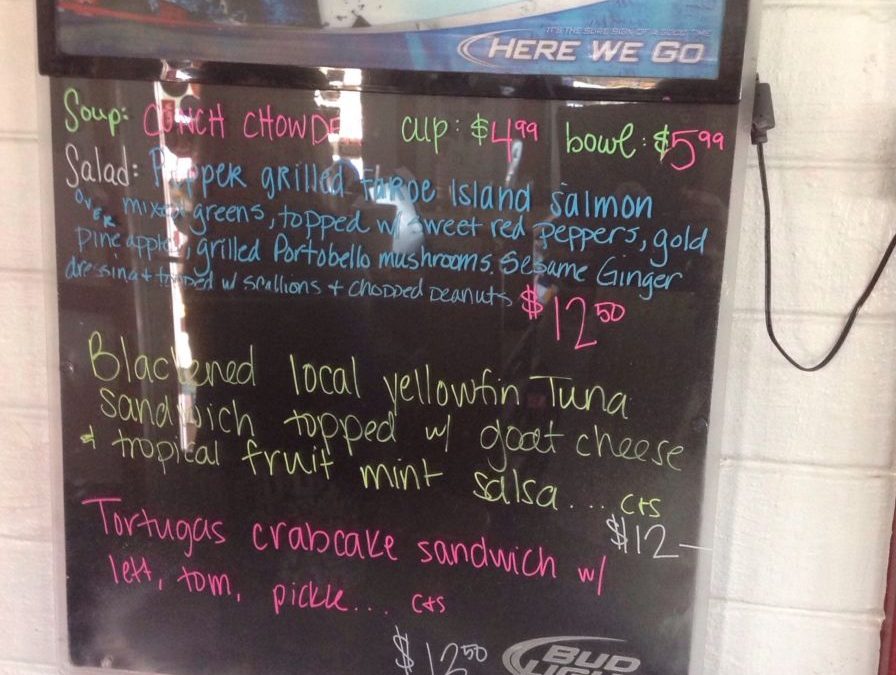 IT'S THE SURE SIGN OF A GOOD TIME
HERE WE GO
Soup: CONCH CHOWDE cup: $4.99 bowl: $5.99
Salad: Pepper grilled Faroe Island salmon
over mixed greens, topped w/ sweet red peppers, gold
pineapple, grilled Portobello mushrooms. Sesame Ginger
dressing & topped w/ scallions & chopped peanuts $12.50
Blackened local yellowfin Tuna
sandwich topped w/ goat cheese
& tropical fruit mint salsa.... c&s
$12-
Tortugas crabcake sandwich w/
lett, tom, pickle... c&s
$12.50
BUD
LIGHT